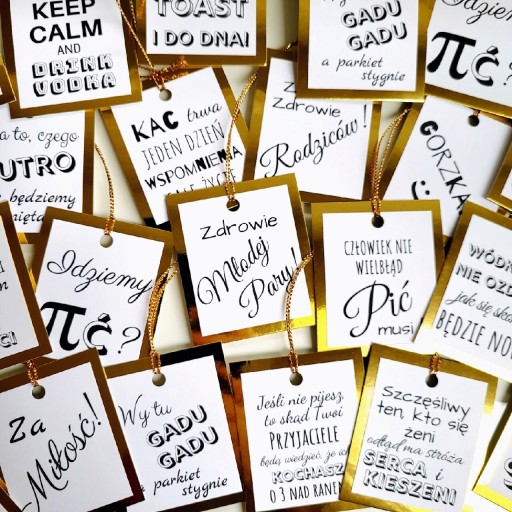 KEEP
CALM
AND
DRINK
VODKA
TOAST
I DO DNA!
GADU
GADU
a parkiet
stygnie
Idziemy
πć?
to, czego
UTRO
będziemy
KAC trwa
JEDEN DZIEŃ
WSPOMNIENIA
CAŁE ŻYCIE
Zdrowie
Rodziców!
GORZKA
Idziemy
πć?
Zdrowie
Młodej
Pary!
CZŁOWIEK NIE
WIELBŁĄD
Pić
musi
WÓDK
NIE OZD
jak się sko
BĘDZIE NOW
Za
Miłość!
Wy tu
GADU
GADU
a parkiet
stygnie
Jeśli nie pijesz,
to skąd Twoi
PRZYJACIELE
będą wiedzieć, że ich
KOCHASZ
O 3 NAD RANEM
Szczęśliwy
ten, kto się
żeni
odtąd ma stróża
SERCA i
KIESZENI